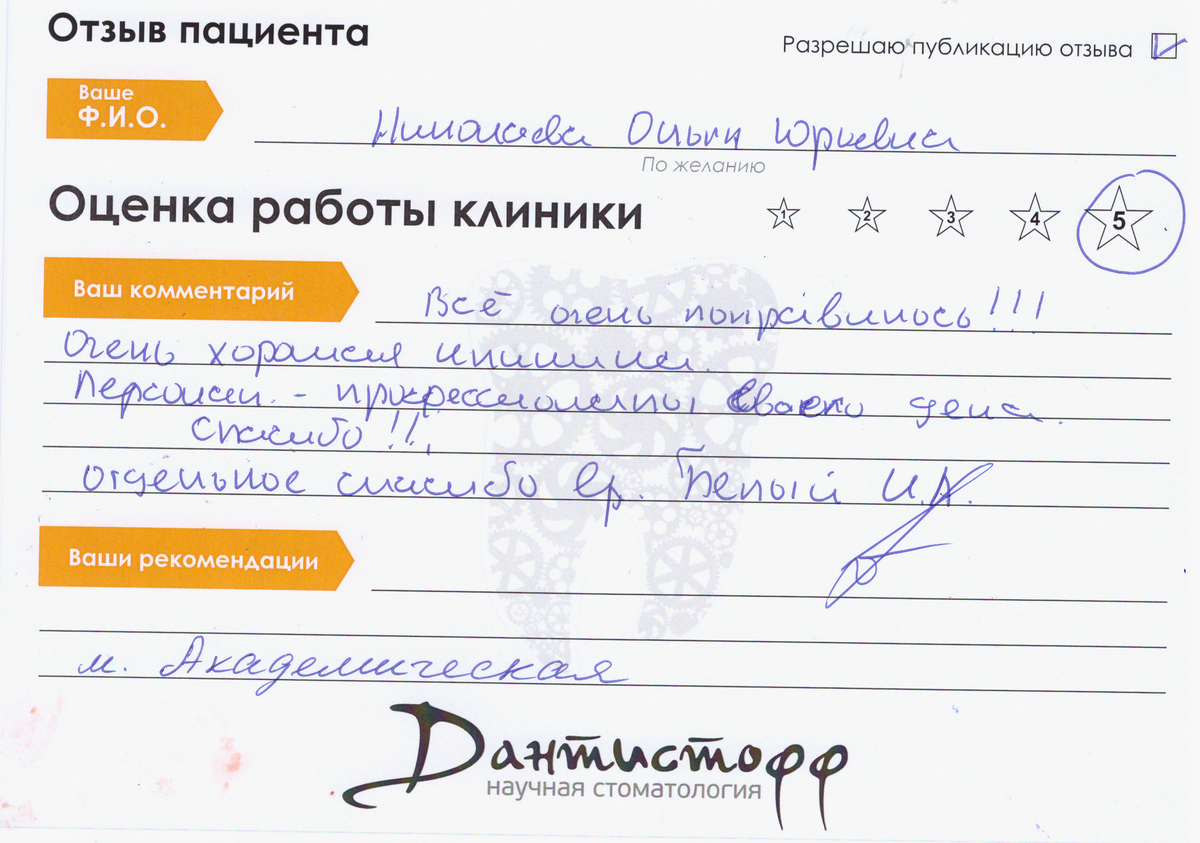 Отзыв пациента
Разрешаю публикацию отзыва
Ваше
Ф.И.О.
Николаева Ольга Юрьевна
По желанию
Оценка работы клиники
1 2 3 4 5
Ваш комментарий
Всё очень понравилось!!!
Очень хорошая клиника.
Персонал - профессионалы своего дела.
Спасибо!!!
Отдельное спасибо вр. Белый И.А.
Ваши рекомендации
м. Академическая
Дантистофф
научная стоматология